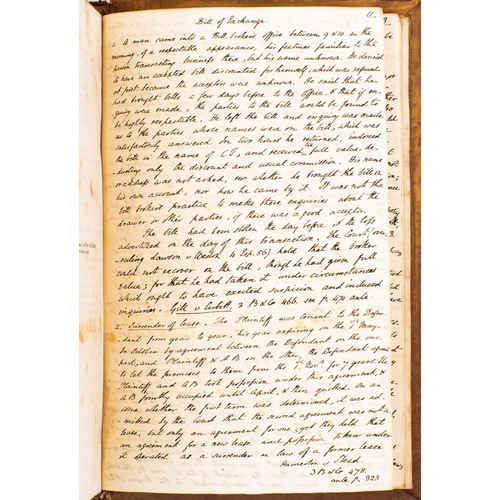 11.
Bill of Exchange
1. A man came into a Bill broker's office between 9 & 10 in the
morning, of a respectable appearance, his features familiar to the
person transacting business there, but his name unknown. He desired
to have an accepted bill discounted for himself, which was refused
at first because the acceptors were unknown. He said that he
had brought bills a few days before to the office, & that if en-
quiry were made, the parties to the bill would be found to
be highly respectable. He left the bill and enquiry was made
as to the parties whose names were on the bill, which was
satisfactorily answered. In two hours he returned, indorsed
the bill in the name of C.T., and received the full value, de-
ducting only the discount and usual commission. His name
or address was not asked, nor whether he brought the bill on
his own account, nor how he came by it. It was not the
bill broker's practice to make these enquiries about the
drawer or other parties, if there was a good acceptor.
The bill had been stolen the day before & the loss
advertized on the day of this transaction. The Court (over-
ruling Lawson v Weston 4 Esp. 56) held that the broker
could not recover on the bill, though he had given full
value; for that he had taken it under circumstances
which ought to have excited suspicion and induced
enquiries. Gill v Cubitt. 3 B & Co 466. see p. 470 ante
2. Surrender of lease. The Plaintiff was tenant to the Defen
dant from year to year, his year expiring on the 1st May.
In October by agreement between the Defendant on the one
part, and Plaintiff & A B on the other, the Defendant agreed
to let the premises to them from the 1st Novr for 7 years. The
Plaintiff and A B took possession under this agreement, &
A B jointly occupied until April, & then quitted. On an
issue whether the first term was determined, it was ad-
mitted by the court that the second agreement was not a
lease, but only an agreement for one; yet they held that
an agreement for a new lease and possession taken under
it operated as a surrender in law of a former lease
Hamerton v Stead.
3 B & Co 478.
ante p. 323